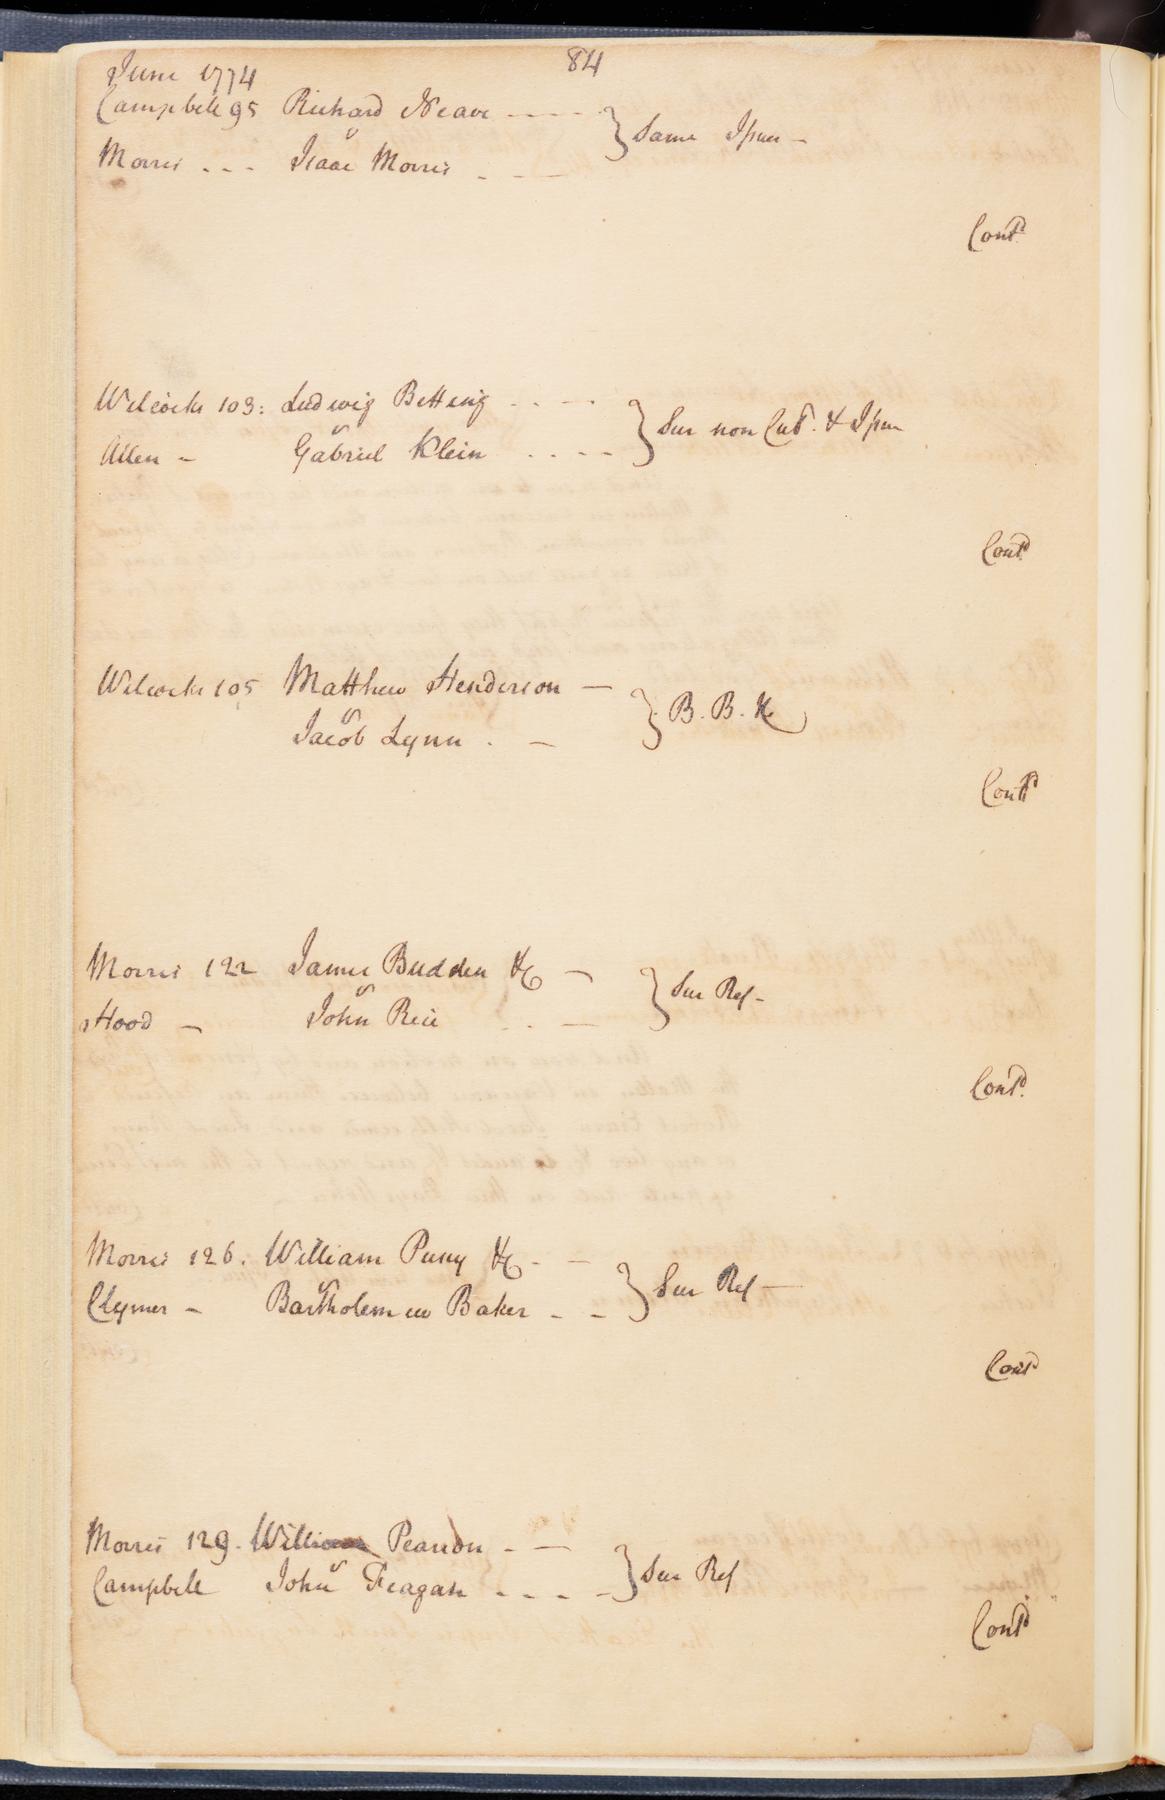 June 1774 84
Campbell 95 Richard Neave - - - -
v } Same Issue -
Morris - - - Isaac Morris - - -
Contd
Wilcocks 103: Ludwig Betting - - - -
v } Sur non Cul. & Issue
Allen - Gabriel Klein - - - -
Contd
Wilcocks 105 Matthew Henderson -
v } B. B. &c
Jacob Lynn . -
Contd
Morris 122 James Budden &c -
v } Sur Ref -
Hood - John Rice - - -
Contd.
Morris 126. William Pusey &c - -
v } Sur Ref -
Clymer - Bartholomew Baker - -
Contd
Morris 129. William Pearson - -
v } Sur Ref
Campbell John Feagan - - - -
Contd